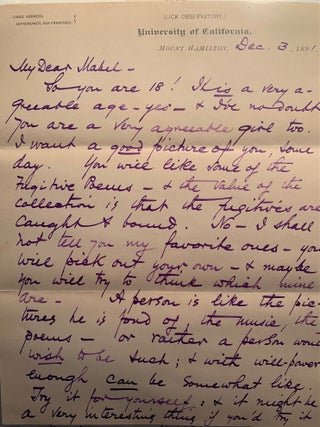 (LICK OBSERVATORY.)
CABLE ADDRESS,
University of California,
MOUNT HAMILTON, Dec. 3, 1891
My Dear Mabel -
So you are 18! It is a very a-
greeable age - yes - & I've no doubt
you are a very agreeable girl too.
I want a good picture of you, some
day. You will like some of the
Fugitive Poems - & the value of the
collection is that the fugitives are
caught & bound. No - I shall
not tell you my favorite ones - you
will pick out your own - & maybe
you will try to think which mine
are - A person is like the pic-
tures he is fond of the music, the
poems - or rather a person would
wish to be such; & with will-power
enough can be somewhat like.
Try it for yourself; & it might be
a very interesting thing if you'd try it